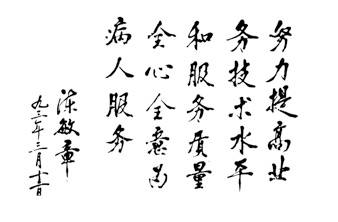 努力提高业
务技术水平
和服务质量
全心全意为
病人服务
陈敏章
九三年三月十二日